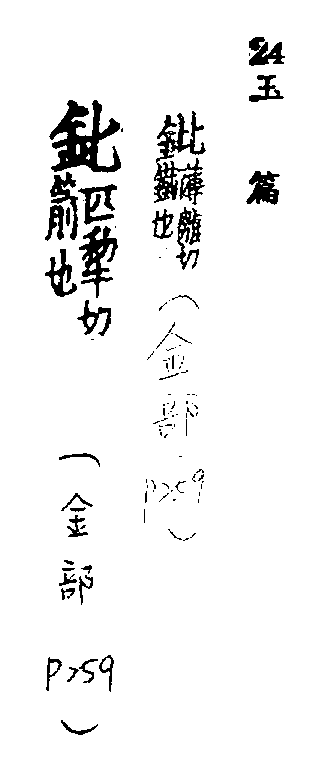 24 玉篇
鈚薄離切 也(金部 P259)
鈚匹犁切箭也(金部 P259)